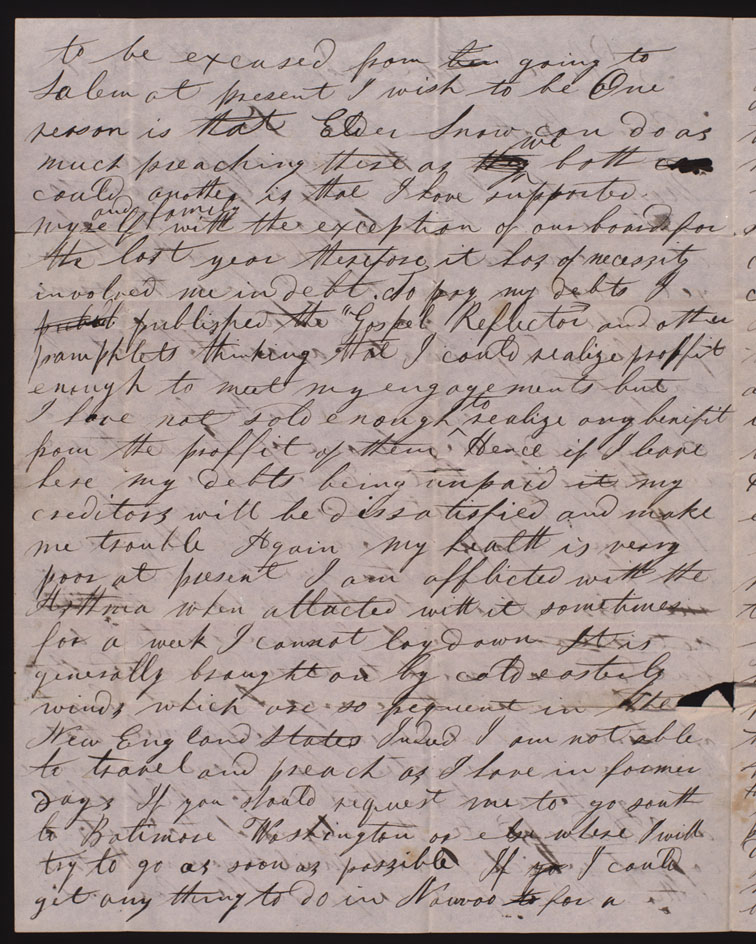 to be excused from going to
Salem at present I wish to be One
reason is that Elder Snow can do as
much preaching there as we both
could another is that I have supported
myself and family with the exception of our board for
the last year therefore it has of necessity
involved me in debt. To pay my debts I
published the "Gospel Reflector" and other
pamphlets thinking that I could realize proffit
enough to meet my engagements but
I have not sold enough to realize any benifit
from the proffit of them Hence if I leave
here my debts being unpaid it my
creditors will be dissatisfied and make
me trouble Again my health is very
poor at present I am afflicted with the
Asthma when attacted with it sometimes
for a week I cannot lay down It is
generally brought on by cold easterly
winds which are so frequent in the
New England States Indeed I am not able
to travel and preach as I have in former
days If you should request me to go south
to Batimore Washington or else where I will
try to go as soon as possible If I could
git any thing to do in Nauvoo for a